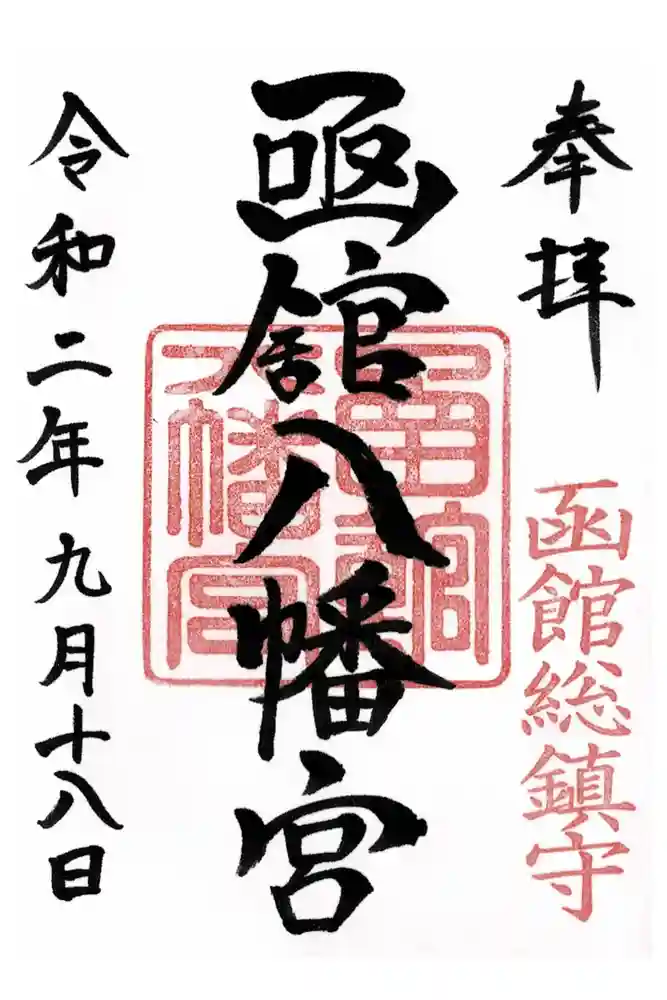 奉拝
函館総鎮守
函館八幡宮
函館八幡宮
令和二年九月十八日